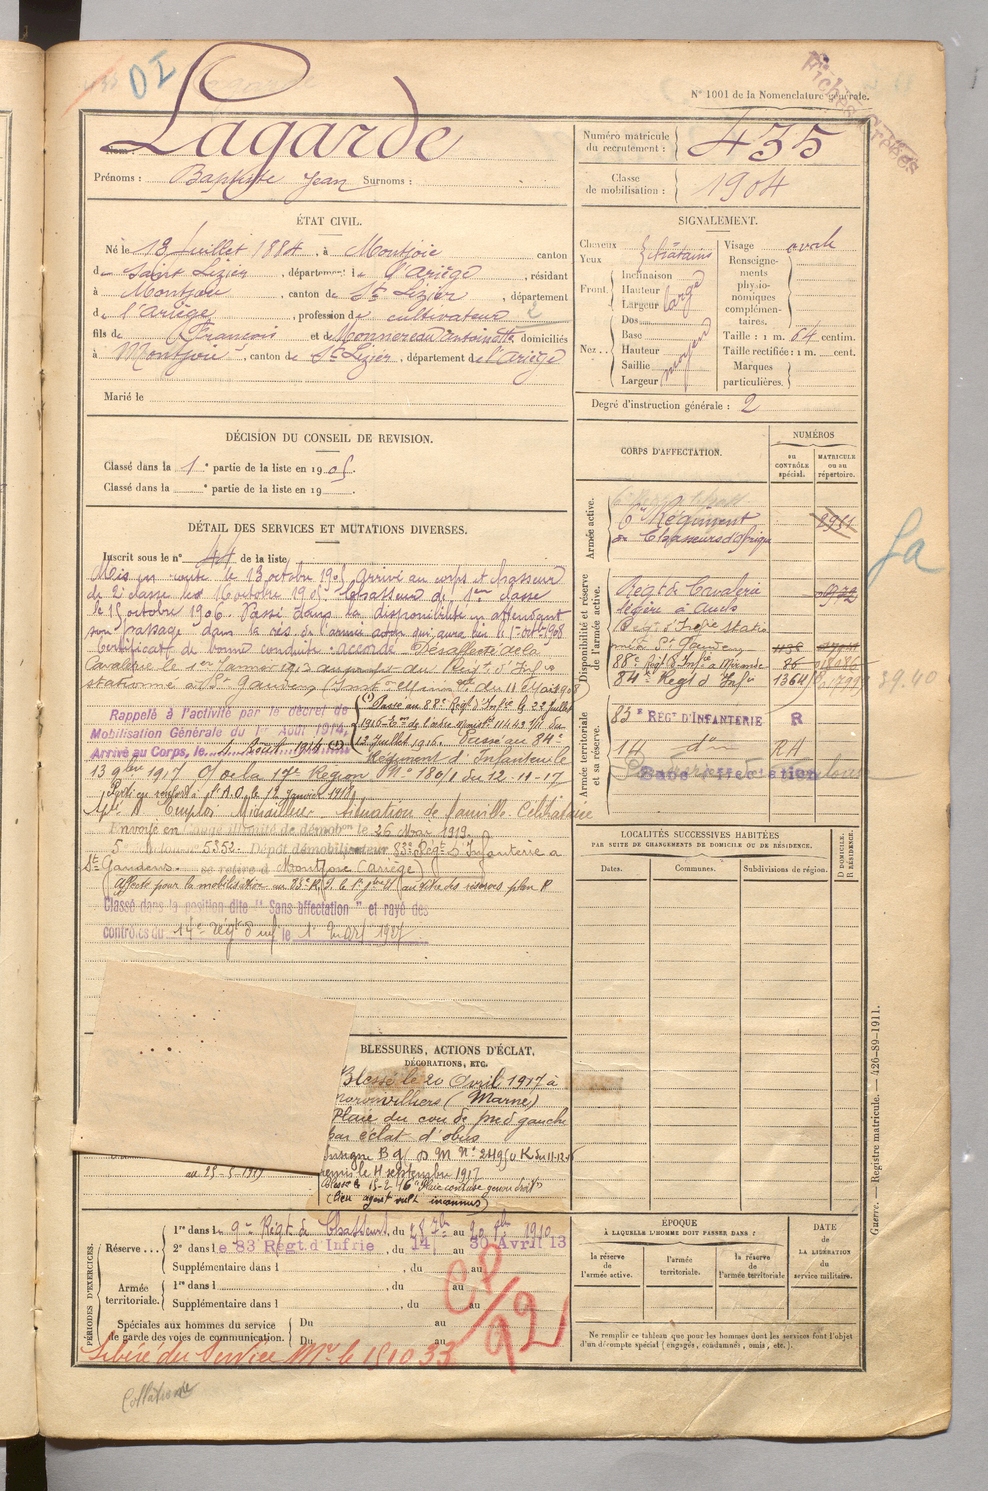 DI
N° 1001 de la Nomenclature générale.
Fiches
Nom : Lagarde
Prénoms : Baptiste Jean Surnoms :
Numéro matricule du recrutement : 435
Classe de mobilisation : 1904
ÉTAT CIVIL.
Né le 13 Juillet 1884, à Montjoie canton
de Saint Lizier, département de l'Ariège, résidant
à Montjoie, canton de St Lizier, département
de l'Ariège, profession de cultivateur 2
fils de François et de Monnereau Antoinette domiciliés
à Montjoie, canton de St Lizier, département de l'Ariège
Marié le
SIGNALEMENT.
Cheveux châtains
Yeux
Front. Inclinaison
Hauteur
Largeur large
Nez.. Dos
Base
Hauteur moyen
Saillie
Largeur
Visage ovale
Renseignements physionomiques complémentaires.
Taille : 1 m. 64 centim.
Taille rectifiée : 1 m. cent.
Marques particulières.
Degré d'instruction générale : 2
DÉCISION DU CONSEIL DE REVISION.
Classé dans la 1e partie de la liste en 1905.
Classé dans la e partie de la liste en 19 .
CORPS D'AFFECTATION.
NUMÉROS
au CONTRÔLE spécial.
MATRICULE ou au répertoire.
Armée active.
6e Régiment
de Chasseurs d'Afrique
2951
Disponibilité et réserve de l'armée active.
Régt de Cavalerie
légère à Auch
Régt d'Infie statio
né à St Gaudens
88e Régt d'Infie à Mirande 86
84e Régt d'Infie 1364
39.40
ga
Armée territoriale et sa réserve.
83e RÉGt D'INFANTERIE R
14 dn RA
Sans affectation
DÉTAIL DES SERVICES ET MUTATIONS DIVERSES.
Inscrit sous le n° 44 de la liste
Mis en route le 13 octobre 1905 arrivé au corps et chasseur
de 2e classe le 16 octobre 1905. Chasseur de 1ère classe
le 15 octobre 1906. Passé dans la disponibilité en attendant
son passage dans la rés. de l'armée active qui aura lieu le 1er octbre 1908
Certificat de bonne conduite accordé. Désaffecté de la
Cavalerie le 1er Janvier 1912 du Régt d'Infie
stationné à St Gaudens
Rappelé à l'activité par le décret de
Mobilisation Générale du 1er Août 1914.
Arrivé au Corps, le 1 Août 1914 (1)
(1) Passé au 88e Régt d'Infie le 22 Juillet
1916
12 Juillet 1916. Passé au 84e
Régiment d'Infanterie le
13 9bre 1917 O/ de la 17e Région N° 180/1 du 12-11-17
Parti en renfort à l'A.O. le 12 Janvier 1918
Apt. à Emploi Mitrailleur. Situation de famille Célibataire
Envoyé en Congé illimité de démobon le 26 Mars 1919.
5 5352. Dépôt démobilisateur 83e Régt d'Infanterie à
St Gaudens. se retire à Montjoie (Ariège)
Affecté pour la mobilisation au 83e R.I.
Classé dans la position dite "Sans affectation" et rayé des
contrôles du 14e Régt d'Inf le 1er Mars 1927
BLESSURES, ACTIONS D'ÉCLAT,
DÉCORATIONS, ETC.
Blessé le 20 Avril 1917 à
Moronvilliers (Marne)
Plaie du cou de pied gauche
par éclat d'obus
remis le 4 septembre 1917
Blessé le 15-2-16 Plaie contuse genou droit
(lieu agent vuln. inconnus)
au 25-5-1917
LOCALITÉS SUCCESSIVES HABITÉES
PAR SUITE DE CHANGEMENTS DE DOMICILE OU DE RÉSIDENCE.
Dates. Communes. Subdivisions de région.
D DOMICILE. R RÉSIDENCE.
PÉRIODES D'EXERCICES.
Réserve... 1re dans le 9e Régt de Chasseurs, du au 1910
2e dans le 83 Régt d'Infrie, du 14 au 30 Avril 13
Supplémentaire dans l , du au
Armée territoriale. 1re dans l , du au
Supplémentaire dans l , du au
Spéciales aux hommes du service de garde des voies de communication. Du au
Du au
CP/92
Libéré du Service Mre le 15 10 33
ÉPOQUE
À LAQUELLE L'HOMME DOIT PASSER DANS :
la réserve de l'armée active.
l'armée territoriale.
la réserve de l'armée territoriale
DATE de LA LIBÉRATION du service militaire.
Ne remplir ce tableau que pour les hommes dont les services font l'objet
d'un décompte spécial (engagés, condamnés, omis, etc.).
Guerre. — Registre matricule. — 426-89-1911.
Collationné